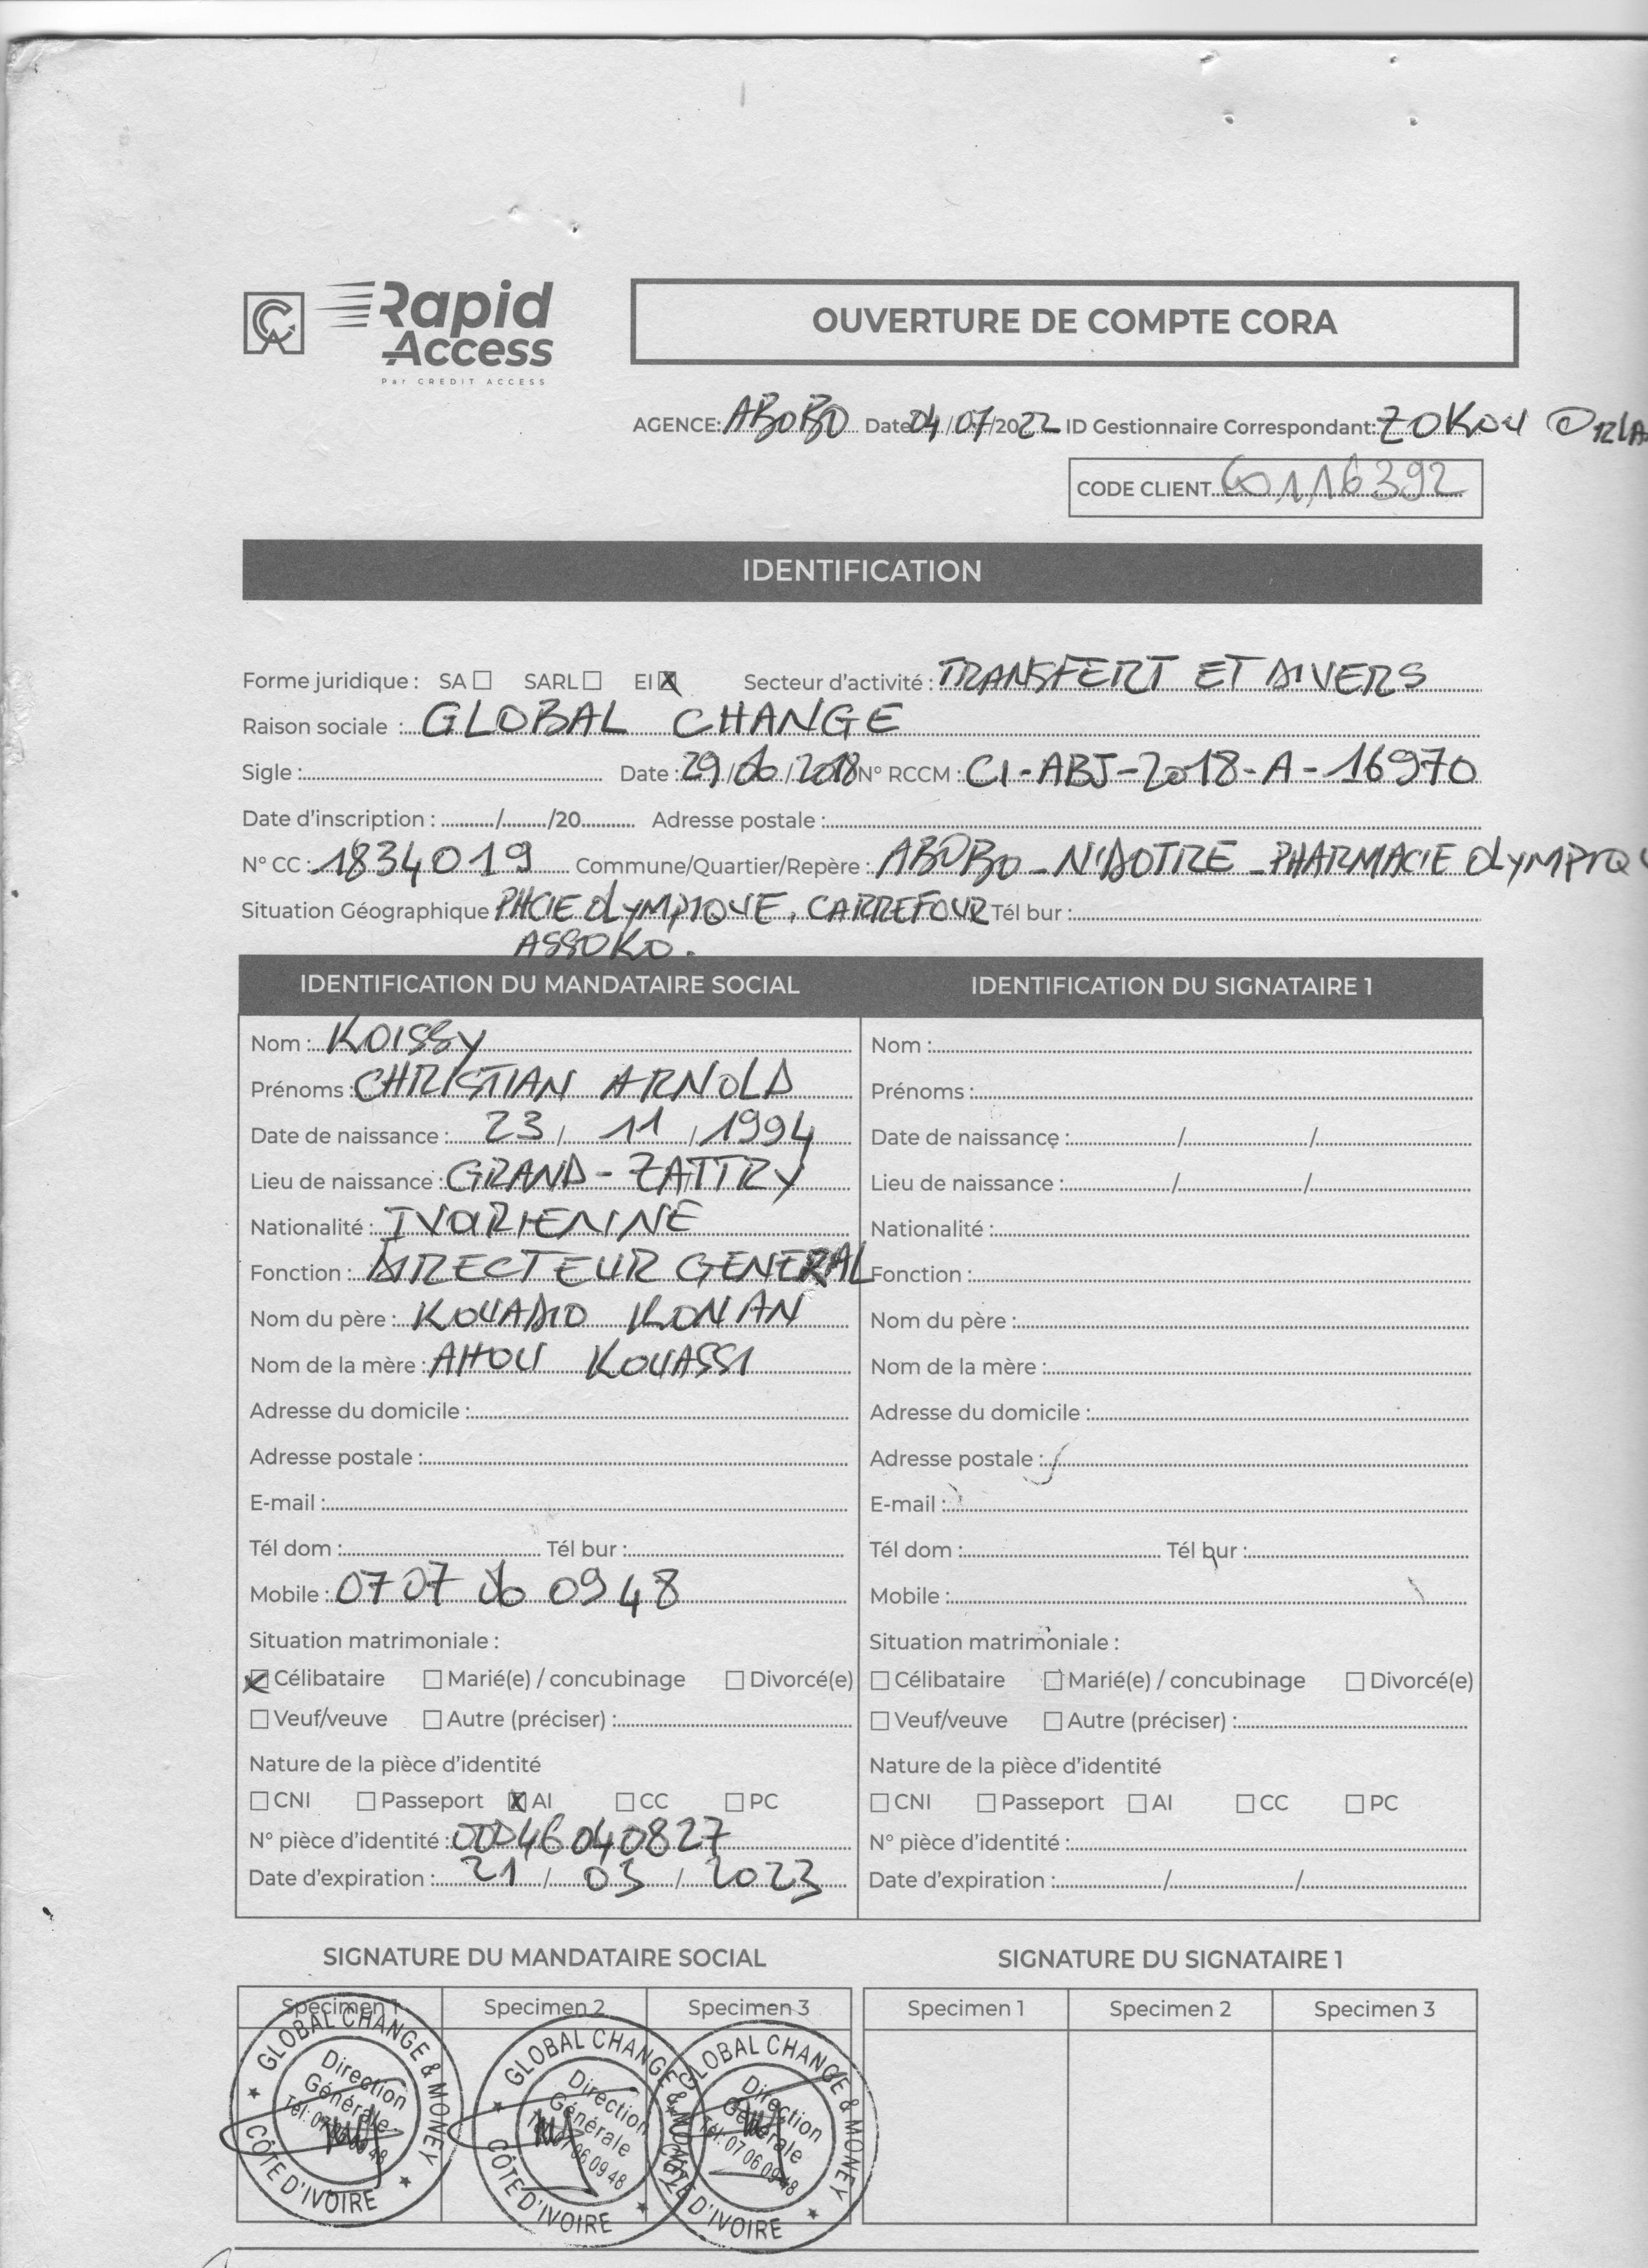 CA Rapid Access
Par CREDIT ACCESS
OUVERTURE DE COMPTE CORA
AGENCE: ABOBO Date 04/07/2022 ID Gestionnaire Correspondant: ZOKOU
CODE CLIENT 60116392
IDENTIFICATION
Forme juridique : SA ☐ SARL ☐ EI ☒ Secteur d'activité : TRANSFERT ET DIVERS
Raison sociale : GLOBAL CHANGE
Sigle : Date : 29/06/2018 N° RCCM : CI-ABJ-2018-A-16970
Date d'inscription : / /20 Adresse postale :
N° CC : 1834019 Commune/Quartier/Repère : ABOBO-N'DOTRE-PHARMACIE OLYMPIQU
Situation Géographique PHCIE OLYMPIQUE, CARREFOUR Tél bur :
ASSOKO.
IDENTIFICATION DU MANDATAIRE SOCIAL IDENTIFICATION DU SIGNATAIRE 1
Nom : KOISSY Nom :
Prénoms : CHRISTIAN ARNOLD Prénoms :
Date de naissance : 23 / 11 / 1994 Date de naissance : / /
Lieu de naissance : GRAND-ZATTRY Lieu de naissance : / /
Nationalité : IVORIENNE Nationalité :
Fonction : DIRECTEUR GENERAL Fonction :
Nom du père : KOUADIO KONAN Nom du père :
Nom de la mère : AHOU KOUASSI Nom de la mère :
Adresse du domicile : Adresse du domicile :
Adresse postale : Adresse postale :
E-mail : E-mail :
Tél dom : Tél bur : Tél dom : Tél bur :
Mobile : 07 07 06 09 48 Mobile :
Situation matrimoniale : Situation matrimoniale :
☒ Célibataire ☐ Marié(e) / concubinage ☐ Divorcé(e) ☐ Célibataire ☐ Marié(e) / concubinage ☐ Divorcé(e)
☐ Veuf/veuve ☐ Autre (préciser) : ☐ Veuf/veuve ☐ Autre (préciser) :
Nature de la pièce d'identité Nature de la pièce d'identité
☐ CNI ☐ Passeport ☒ AI ☐ CC ☐ PC ☐ CNI ☐ Passeport ☐ AI ☐ CC ☐ PC
N° pièce d'identité : 00046040827 N° pièce d'identité :
Date d'expiration : 21 / 03 / 2023 Date d'expiration : / /
SIGNATURE DU MANDATAIRE SOCIAL SIGNATURE DU SIGNATAIRE 1
Specimen 1 Specimen 2 Specimen 3 Specimen 1 Specimen 2 Specimen 3
GLOBAL CHANGE & MONEY
Direction
Générale
CÔTE D'IVOIRE
GLOBAL CHANGE &
Direction
Générale
CÔTE D'IVOIRE
GLOBAL CHANGE & MONEY
Direction
Générale
Tél: 07 06 09 48
CÔTE D'IVOIRE